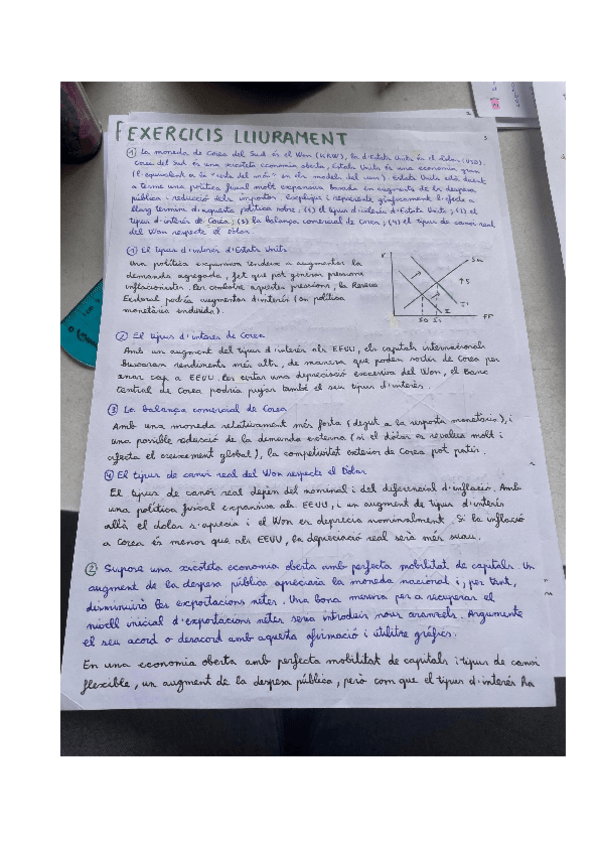 EXERCICIS LLIURAMENT
① La moneda de Corea del Sud és el Won (KRW), la d'Estats Units és el dòlar (USD).
Corea del Sud és una xicoteta economia oberta, Estats Units és una economia gran
(l'equivalent a la "resta del món" en els models del curs). Estats Units està duent
a terme una política fiscal molt expansiva basada en augments de la despesa
pública i reducció dels impostos. Explique i represente gràficament l'efecte a
llarg termini d'aquesta política sobre: (1) el tipus d'interés d'Estats Units; (2) el
tipus d'interés de Corea; (3) la balança comercial de Corea; (4) el tipus de canvi real
del Won respecte el Dòlar.
① El tipus d'interes d'Estats Units
Una política expansiva tendeix a augmentar la
demanda agregada, fet que pot generar pressions
inflacionistes. Per combatre aquestes pressions, la Reserva
Federal podria augmentar d'interés (en política
monetària endurida).
② El tipus d'interes de Corea
Amb un augment del tipus d'interés als EEUU, els capitals internacionals
buscaran rendiments més alts, de manera que poden sortir de Corea per
anar cap a EEUU. Per evitar una depreciació excessiva del Won, el Banc
Central de Corea podria pujar també el seu tipus d'interés.
③ La balança comercial de Corea
Amb una moneda relativament més forta (degut a la resposta monetària), i
una possible reducció de la demanda externa (si el dòlar es revalua molt i
afecta el creixement global), la competitivitat exterior de Corea pot patir.
④ El tipus de canvi real del Won respecte el Dòlar
El tipus de canvi real depèn del nominal i del diferencial d'inflació. Amb
una política fiscal expansiva als EEUU, i un augment de tipus d'interés
allà el dolar s'aprecia i el Won es deprecia nominalment. Si la inflació
a Corea és menor que als EEUU, la depreciació real serà més suau.
② Supose una xicoteta economia oberta amb perfecta mobilitat de capitals. Un
augment de la despesa pública apreciaria la moneda nacional i, per tant,
disminuiria les exportacions netes. Una bona mesura per a recuperar el
nivell inicial d'exportacions netes seria introduir nous aranzels. Argumente
el seu acord o desacord amb aquesta afirmació i utilitze gràfics.
En una economia oberta amb perfecta mobilitat de capitals i tipus de canvi
flexible, un augment de la despesa pública, però com que el tipus d'interés ha